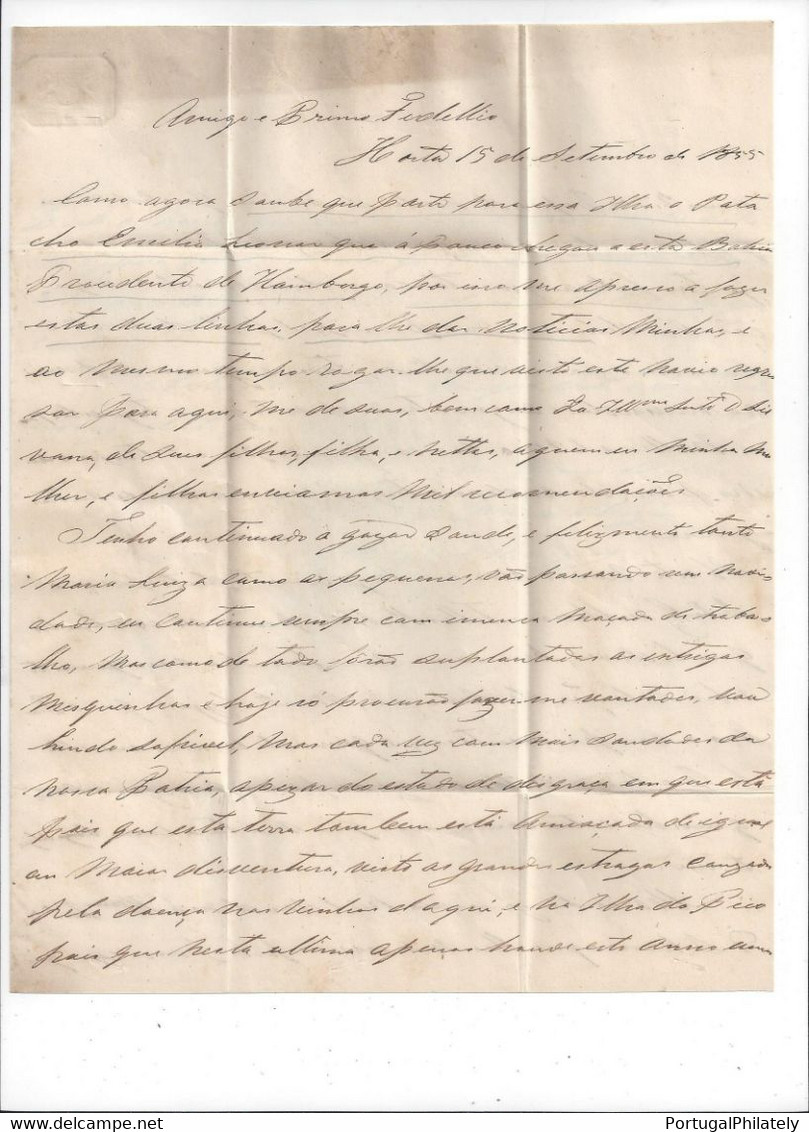 Amigo e Primo Fidellio
Horta 15 de Setembro de 1855
Como agora Saube que parte para essa Ilha o Pata
cho Emilio Leonor que á pouco chegou a esta Bahia
Procedente de Hamborgo, por isso me apresso a fazer
estas duas linhas, para lhe dar noticias Minhas, e
ao mesmo tempo rogar-lhe que visto este navio regre
sar para aqui, me de suas, bem como da Illma Snra D
vana, de Seus filhos, filha, e nettos, a quem eu Minha Mu
lher, e filhas enviamos Mil recomendações
Tenho continuado a gozar Saude, e felizmente tanto
Maria Luiza como as pequenas, vão passando sem novi-
dade, eu continuo sempre com imensa Maçada de traba-
lho, Mas como de todo fôrão suplantadas as intrigas
Mesquinhas e hoje só procurão fazer-me vontades, vou
hindo sofrivel, mas cada vez com Mais Saudades da
nossa Patria, apezar do estado de desgraça em que está
pois que esta terra tambem está Amiaçada de igual
ou Maior disventura, visto os grandes estragos cauzados
pela doença nas vinhas d'aqui, e na Ilha do Pico
pois que nesta ultima apenas houve este Anno uma
PortugalPhilately